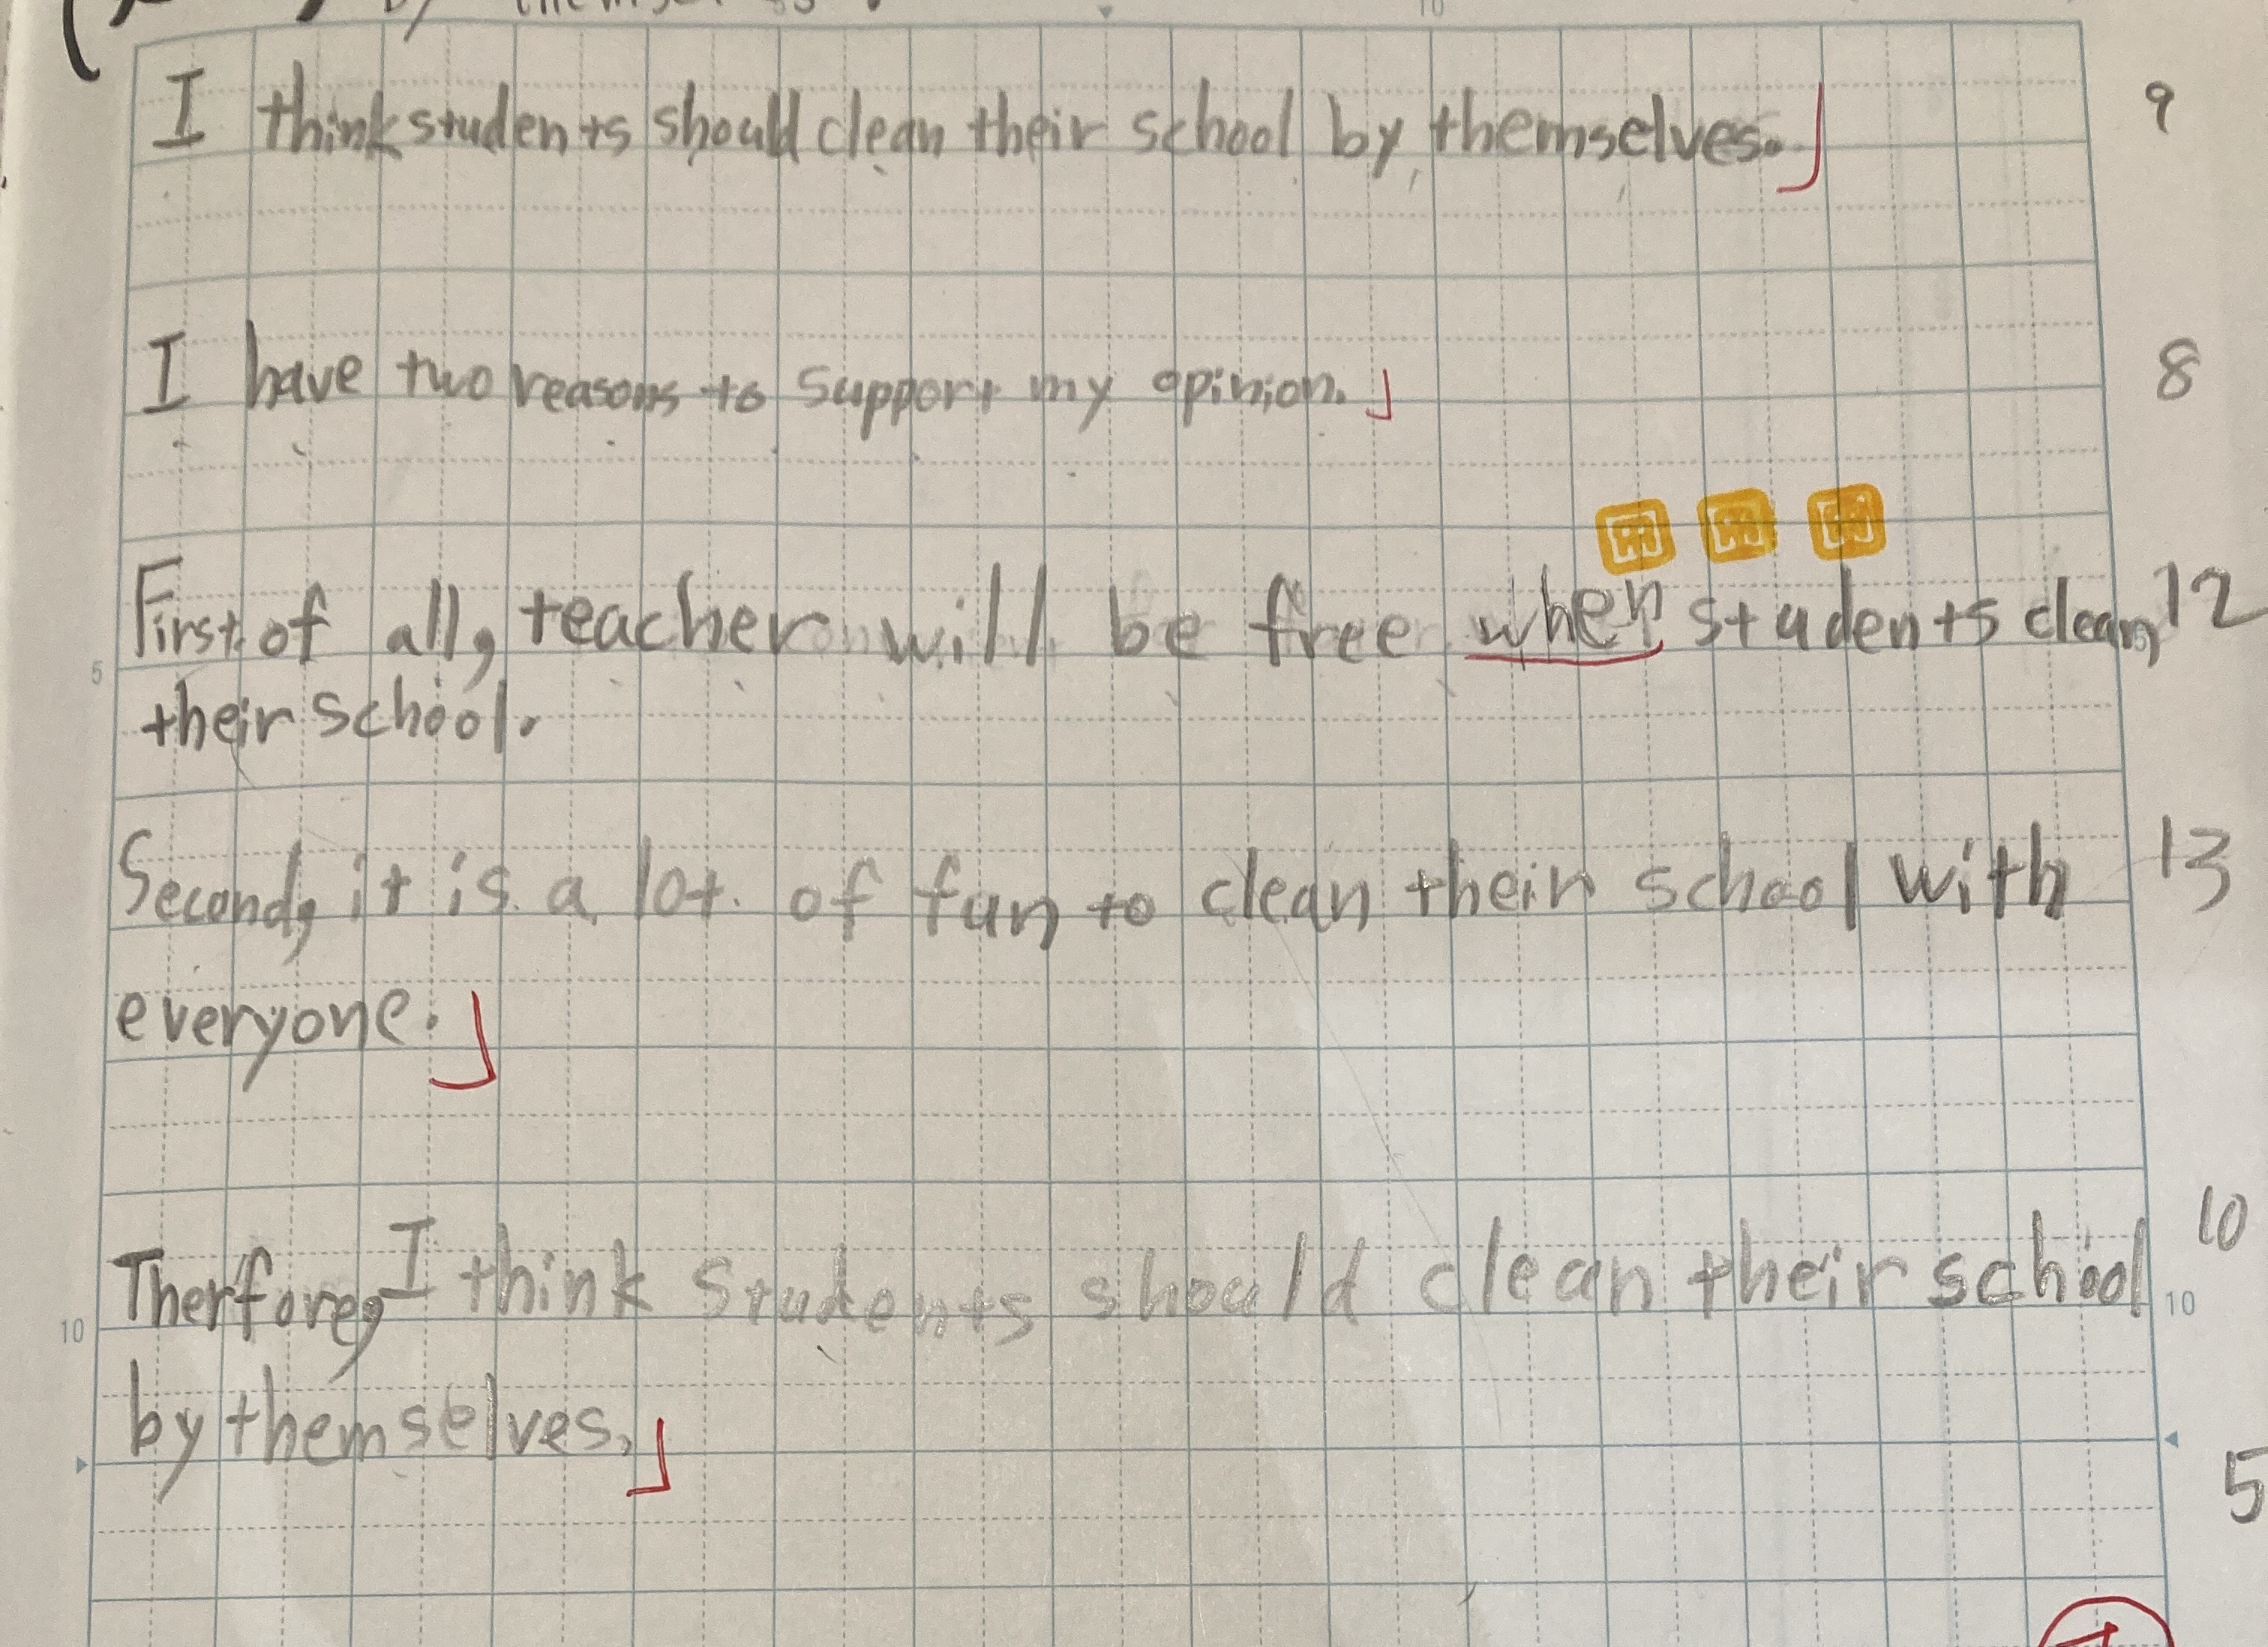 I think students should clean their school by themselves. 9
I have two reasons to support my opinion. 8
First of all, teacher will be free when students clean 12
5
their school.
Second, it is a lot of fun to clean their school with 13
everyone.
10
Therfore, I think students should clean their school
10 10
by themselves.
5